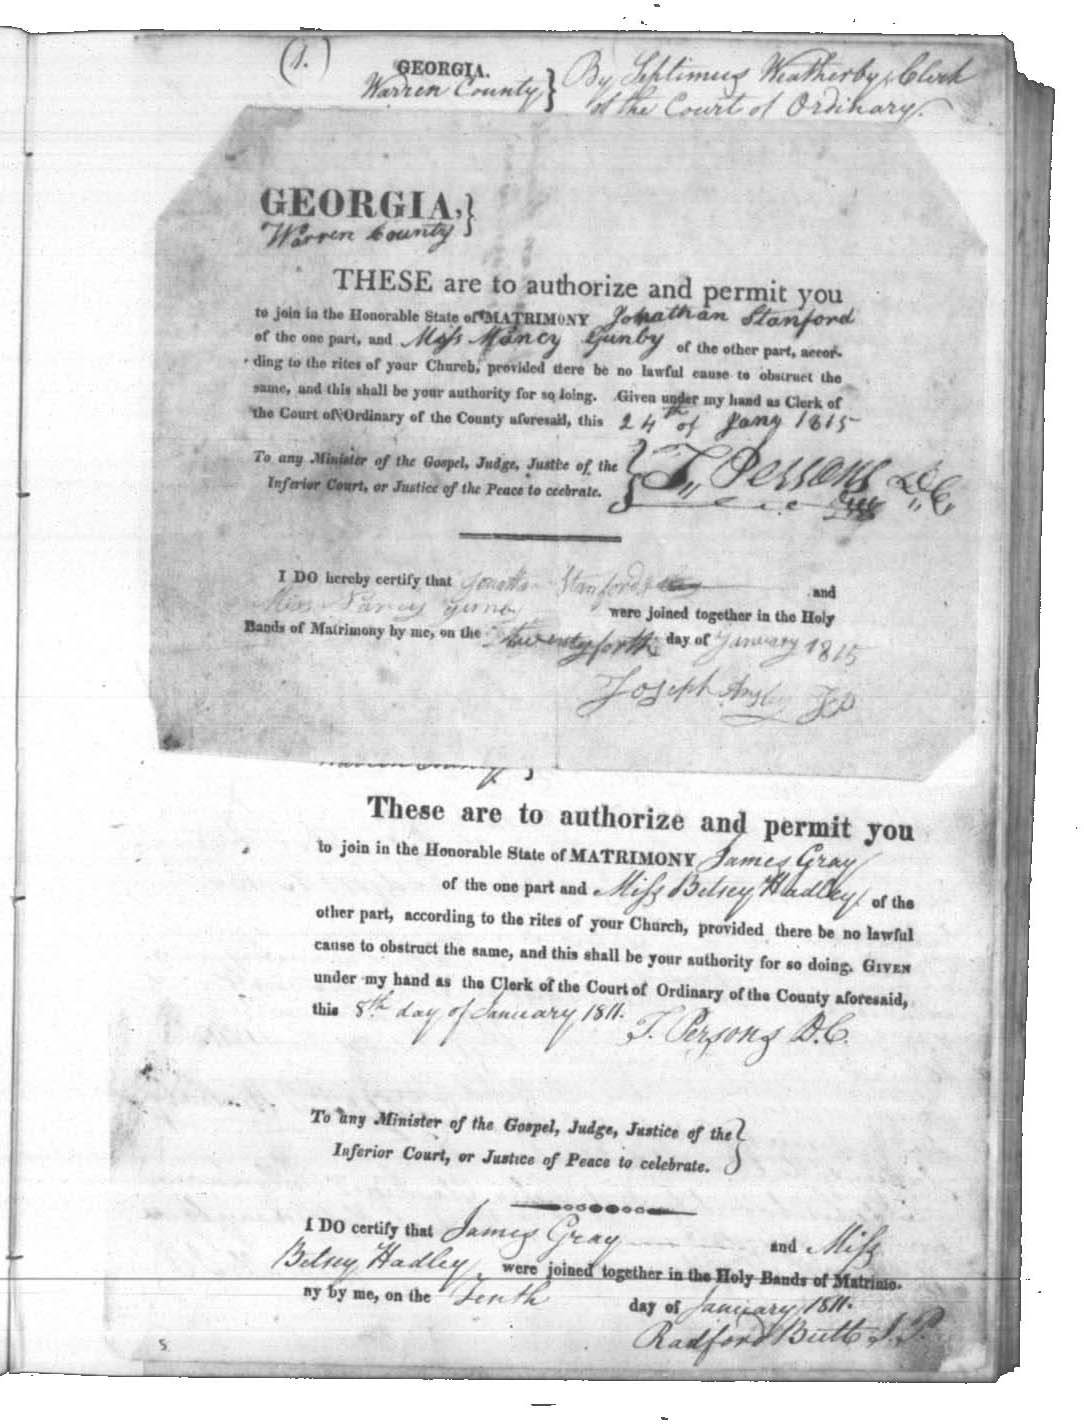 (1.)
GEORGIA. } By Septimus Weatherby, Clerk
Warren County of the Court of Ordinary.
GEORGIA, }
Warren County
THESE are to authorize and permit you
to join in the Honorable State of MATRIMONY Jonathan Stanford
of the one part, and Miss Nancy Gunby of the other part, accor-
ding to the rites of your Church, provided there be no lawful cause to obstruct the
same, and this shall be your authority for so doing. Given under my hand as Clerk of
the Court of Ordinary of the County aforesaid, this 24th of Jany 1815
To any Minister of the Gospel, Judge, Justice of the } T,, Persons D,,C,,
Inferior Court, or Justice of the Peace to ceebrate.
I DO hereby certify that Stanford and
Miss Nancy were joined together in the Holy
Bands of Matrimony by me, on the twentyforth day of January 1815
Joseph Ansley JP
Warren County }
These are to authorize and permit you
to join in the Honorable State of MATRIMONY James Gray
of the one part and Miss Betsey Hadley of the
other part, according to the rites of your Church, provided there be no lawful
cause to obstruct the same, and this shall be your authority for so doing. GIVEN
under my hand as the Clerk of the Court of Ordinary of the County aforesaid,
this 8th day of January 1811. T. Persons D.C.
To any Minister of the Gospel, Judge, Justice of the }
Inferior Court, or Justice of Peace to celebrate.
I DO certify that James Gray and Miss
Betsey Hadley were joined together in the Holy Bands of Matrimo-
ny by me, on the Tenth day of January 1811.
Radford Butt J.P.
5